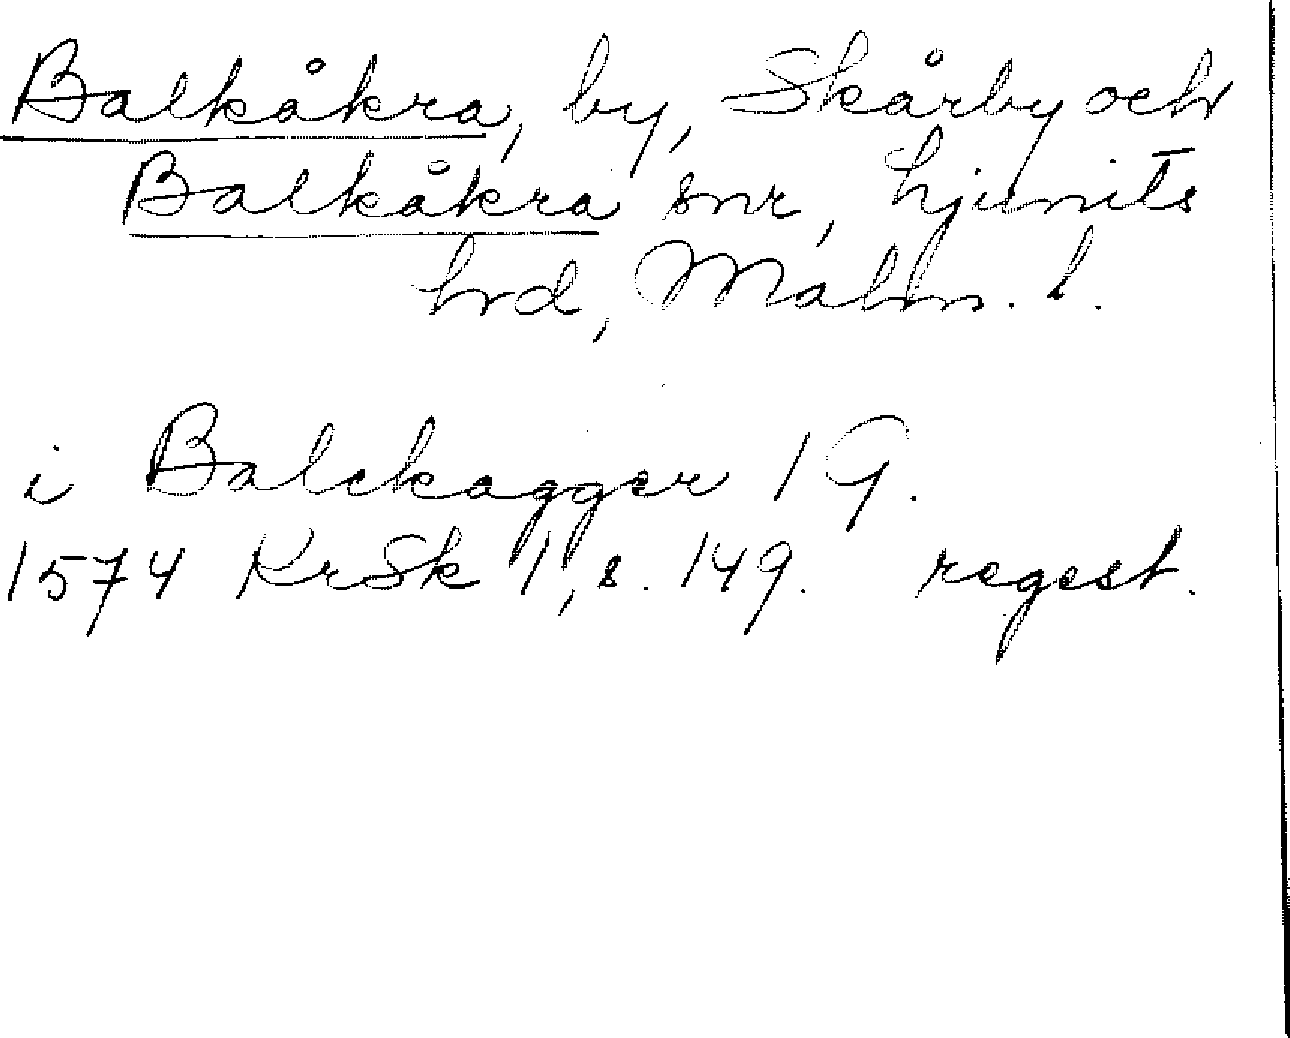 Balkåkra, by, Skårby och
Balkåkra snr, Ljunits
hrd, Malm. l.
i Balckagger 1 G.
1574 KrSk 1, s. 149. regest.